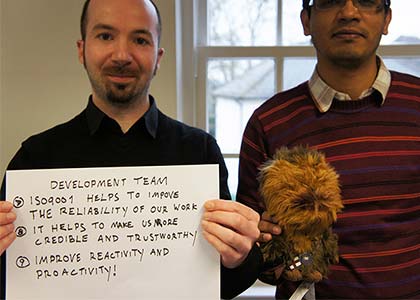 DEVELOPMENT TEAM
7 ISO9001 HELPS TO IMPOVE
THE RELIABILITY OF OUR WORK
8 IT HELPS TO MAKE US MORE
CREDIBLE AND TRUSTWORTHY
9 IMPROVE REACTIVITY AND
PROACTIVITY!